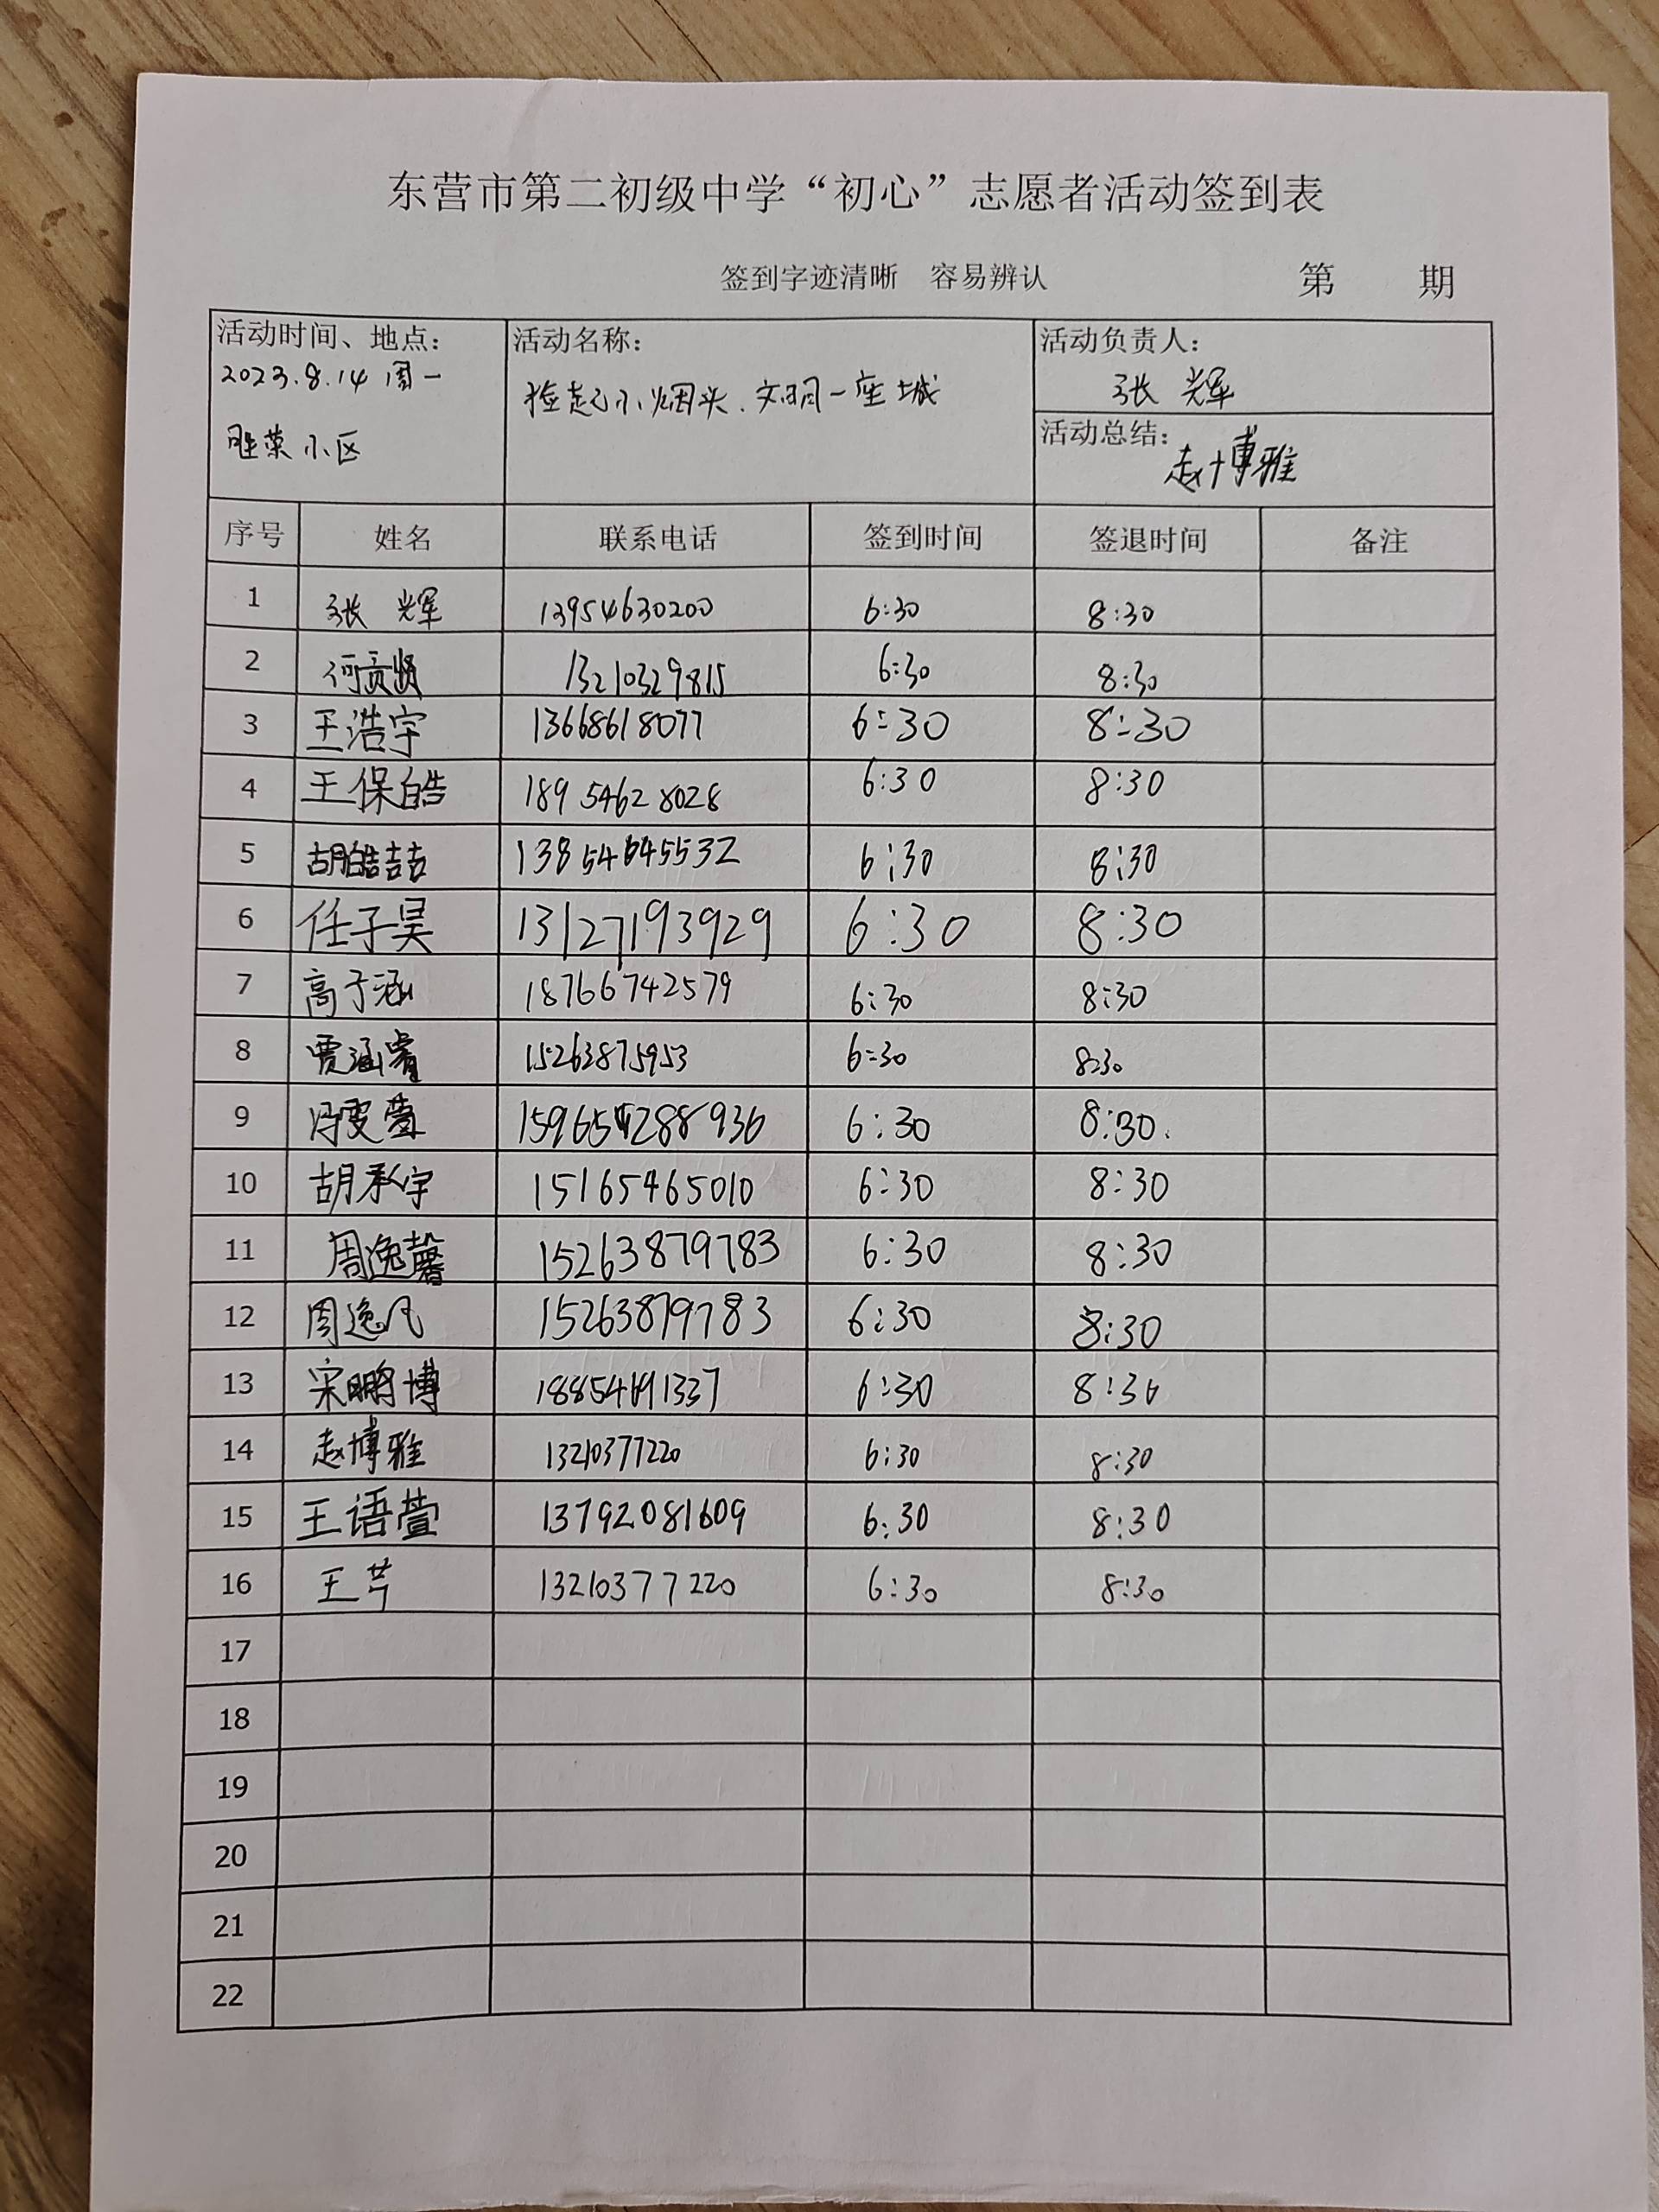 东营市第二初级中学“初心”志愿者活动签到表
签到字迹清晰 容易辨认 第 期
活动时间、地点： 活动名称： 活动负责人：
2023.8.14 周一 捡起小烟头.文明一座城 张 辉
胜荣小区 活动总结：赵博雅
序号 姓名 联系电话 签到时间 签退时间 备注
1 张 辉 13954630200 6:30 8:30
2 何贡贤 13210329815 6:30 8:30
3 王浩宇 13668618077 6:30 8:30
4 王保皓 18954628028 6:30 8:30
5 胡皓喆 13854645532 6:30 8:30
6 任子昊 13127193929 6:30 8:30
7 高子涵 18766742579 6:30 8:30
8 贾涵睿 15263875953 6:30 8:30
9 冯雯萱 6:30 8:30.
10 胡承宇 15165465010 6:30 8:30
11 周逸馨 15263879783 6:30 8:30
12 周逸凡 15263879783 6:30 8:30
13 宋鹏博 18854691337 6:30 8:30
14 赵博雅 13210377220 6:30 8:30
15 王语萱 13792081609 6:30 8:30
16 王芹 13210377220 6:30 8:30
17
18
19
20
21
22